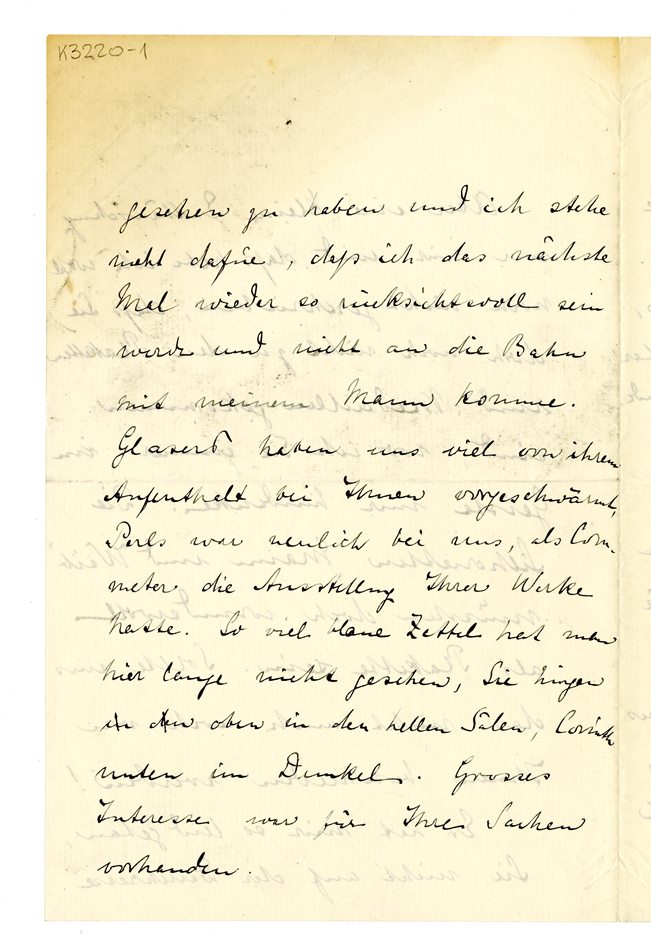 K3220-1
gesehen zu haben und ich stehe
nicht dafür, dass ich das nächste
Mal wieder so rücksichtsvoll sein
werde und nicht an die Bahn
mit meinem Mann komme.
Glasers haben uns viel von ihrem
Aufenthalt bei Ihnen vorgeschwärmt,
Perls war neulich bei uns, als Com-
meter die Ausstellung Ihrer Werke
hatte. So viel blaue Zettel hat man
hier lange nicht gesehen, Sie hingen
oben in den hellen Sälen, Corinth
unten im Dunkel. Grosses
Interesse war für Ihre Sachen
vorhanden.